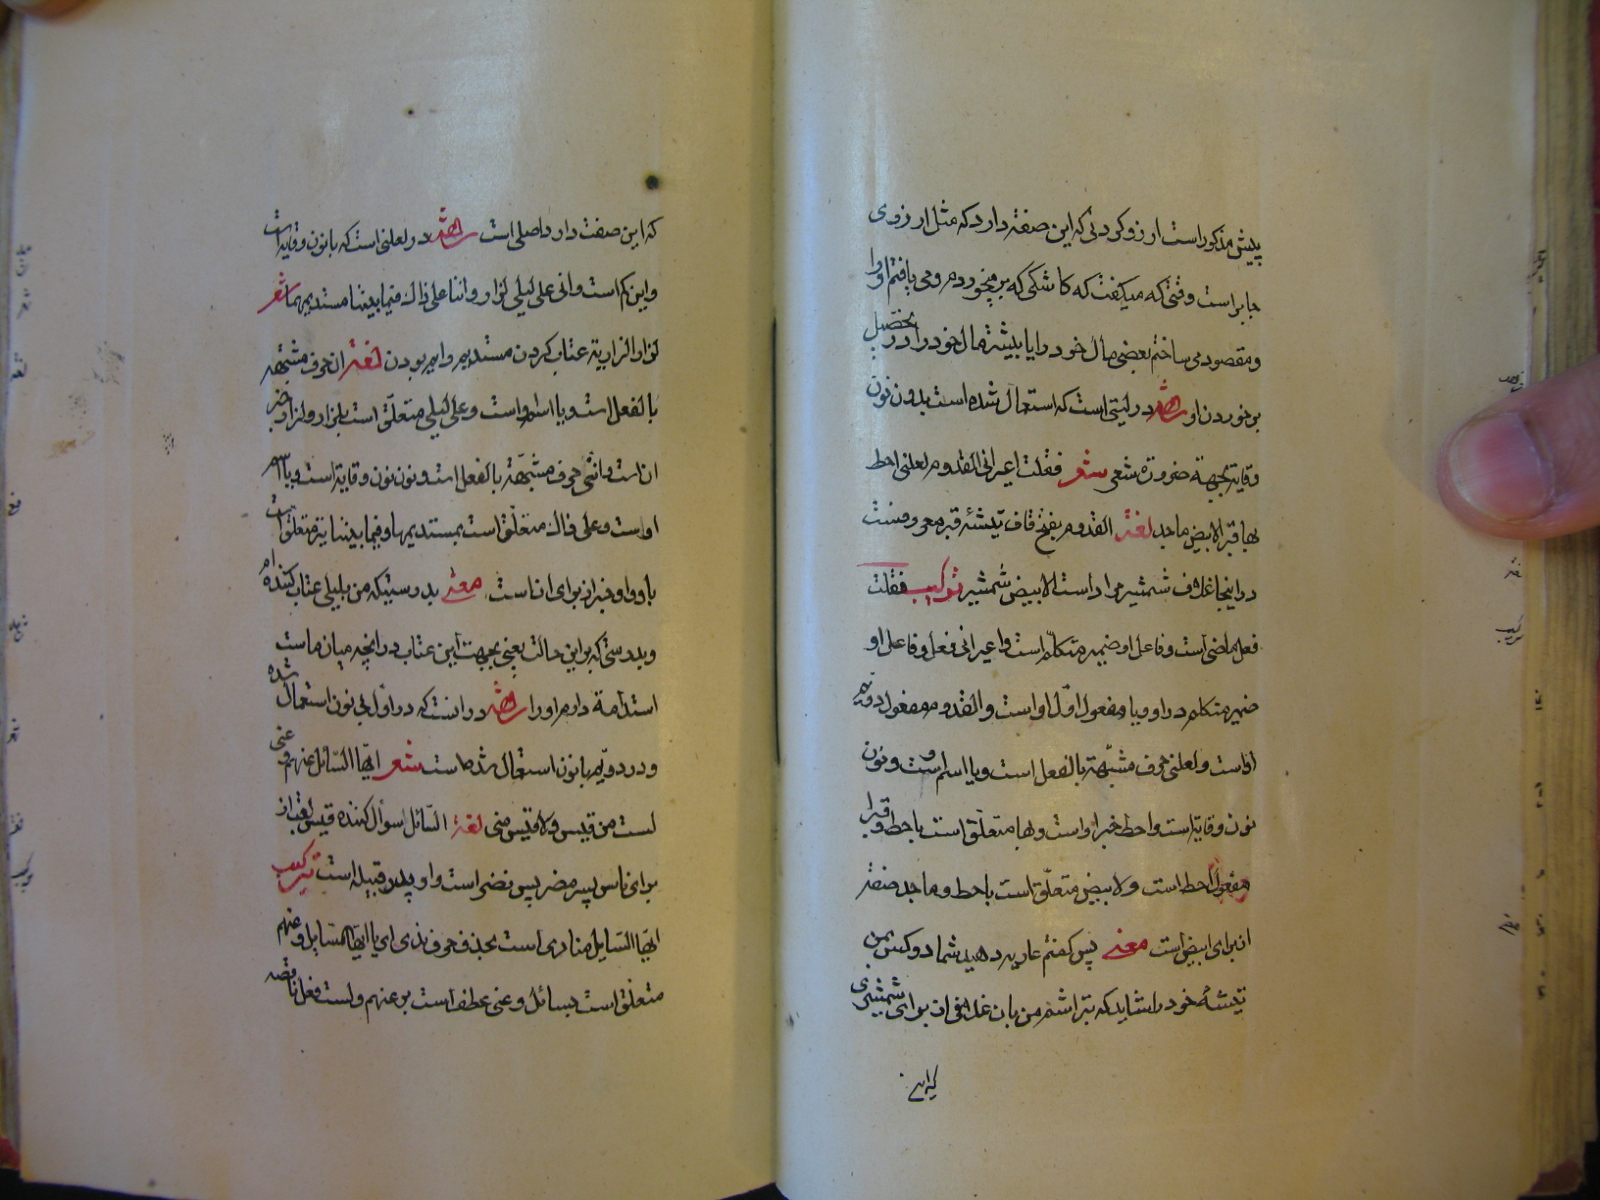 پیش مذکور است ارزو کردنی که این صفة دارد که مثل ارزوی
جابر است وقتی که میکفت که کاشکی که بر میخوردم و می یافتم او را
و مقصود می ساختم بعضی مال خود را یا بیشتر مال خود را در تحصیل
بر خوردن او شاهد در لیتی است که استعمال شده است بدون نون
وقایة بجهة ضرورة شعری شعر فقلت اعیرانی القدوم لعلنی اخط
بها قبرا لابیض ماجد لغة القدوم بفتح قاف تیشه قبر معروفست
در اینجا غلاف شمشیر مراد است لابیض شمشیر ترکیب فقلت
فعل ماضی است و فاعل او ضمیر متکلم است و اعیرانی فعل و فاعل او
ضمیر متکلم در او و یا مفعول اول او است و القدوم مفعول دویم
او است و لعلنی حرف مشبّهة بالفعل است و یا اسم او است و نون
نون وقایة است و اخط خبر او است و بها متعلّق است با خط و قبرا
مفعول اخط است و لابیض متعلّق است باخط و ماجد صفة
از برای ابیض است معنی پس کفتم عاریه دهید شما دو کس بمن
تیشهٔ خود را شاید که بتراشم من بان غلافی از برای شمشیری
که این صفت دارد اصلی است شاهد در لعلنی است که با نون وقایه است
و این کم است و انی علی لیلی لزار و اننا علی ذاک فیما بیننا مستدیمها شعر
لزار الزاریة عتاب کردن مستدیم دایم بودن لغة ان حرف مشبّهه
بالفعل است و یا اسم او است و علی لیلی متعلّق است بلزار و لزار خبر
ان است و اننی حرف مشبّهة بالفعل است و نون نون وقایة است و یا اسم
او است و علی ذاک متعلّق است بمستدیمها و فیما بیننا نیز متعلق است
باو و او خبر از برای ان است معنی بدرستیکه من بلیلی عتاب کننده ام
و بدرستی که بر این حالت یعنی بجهت این عتاب در انچه میان ماست
استدامة دارم او را شاهد در انست که در اوّل بی نون استعمال شده
و در دویم با نون استعمال شده است شعر ایّها السّائل عنهم و عنی
لست من قیس و لا قیس منی لغة السّائل سوأل کننده قیس لقب از
برای ناس پسر مضر پس نضر است و او پدر قبیله است ترکیب
ایّها السّایل منادی است بحذف حرف ندی ای یا ایّها السّایل و عنهم
متعلّق است بسائل و عنی عطف است بر عنهم و لست فعل ناقصه